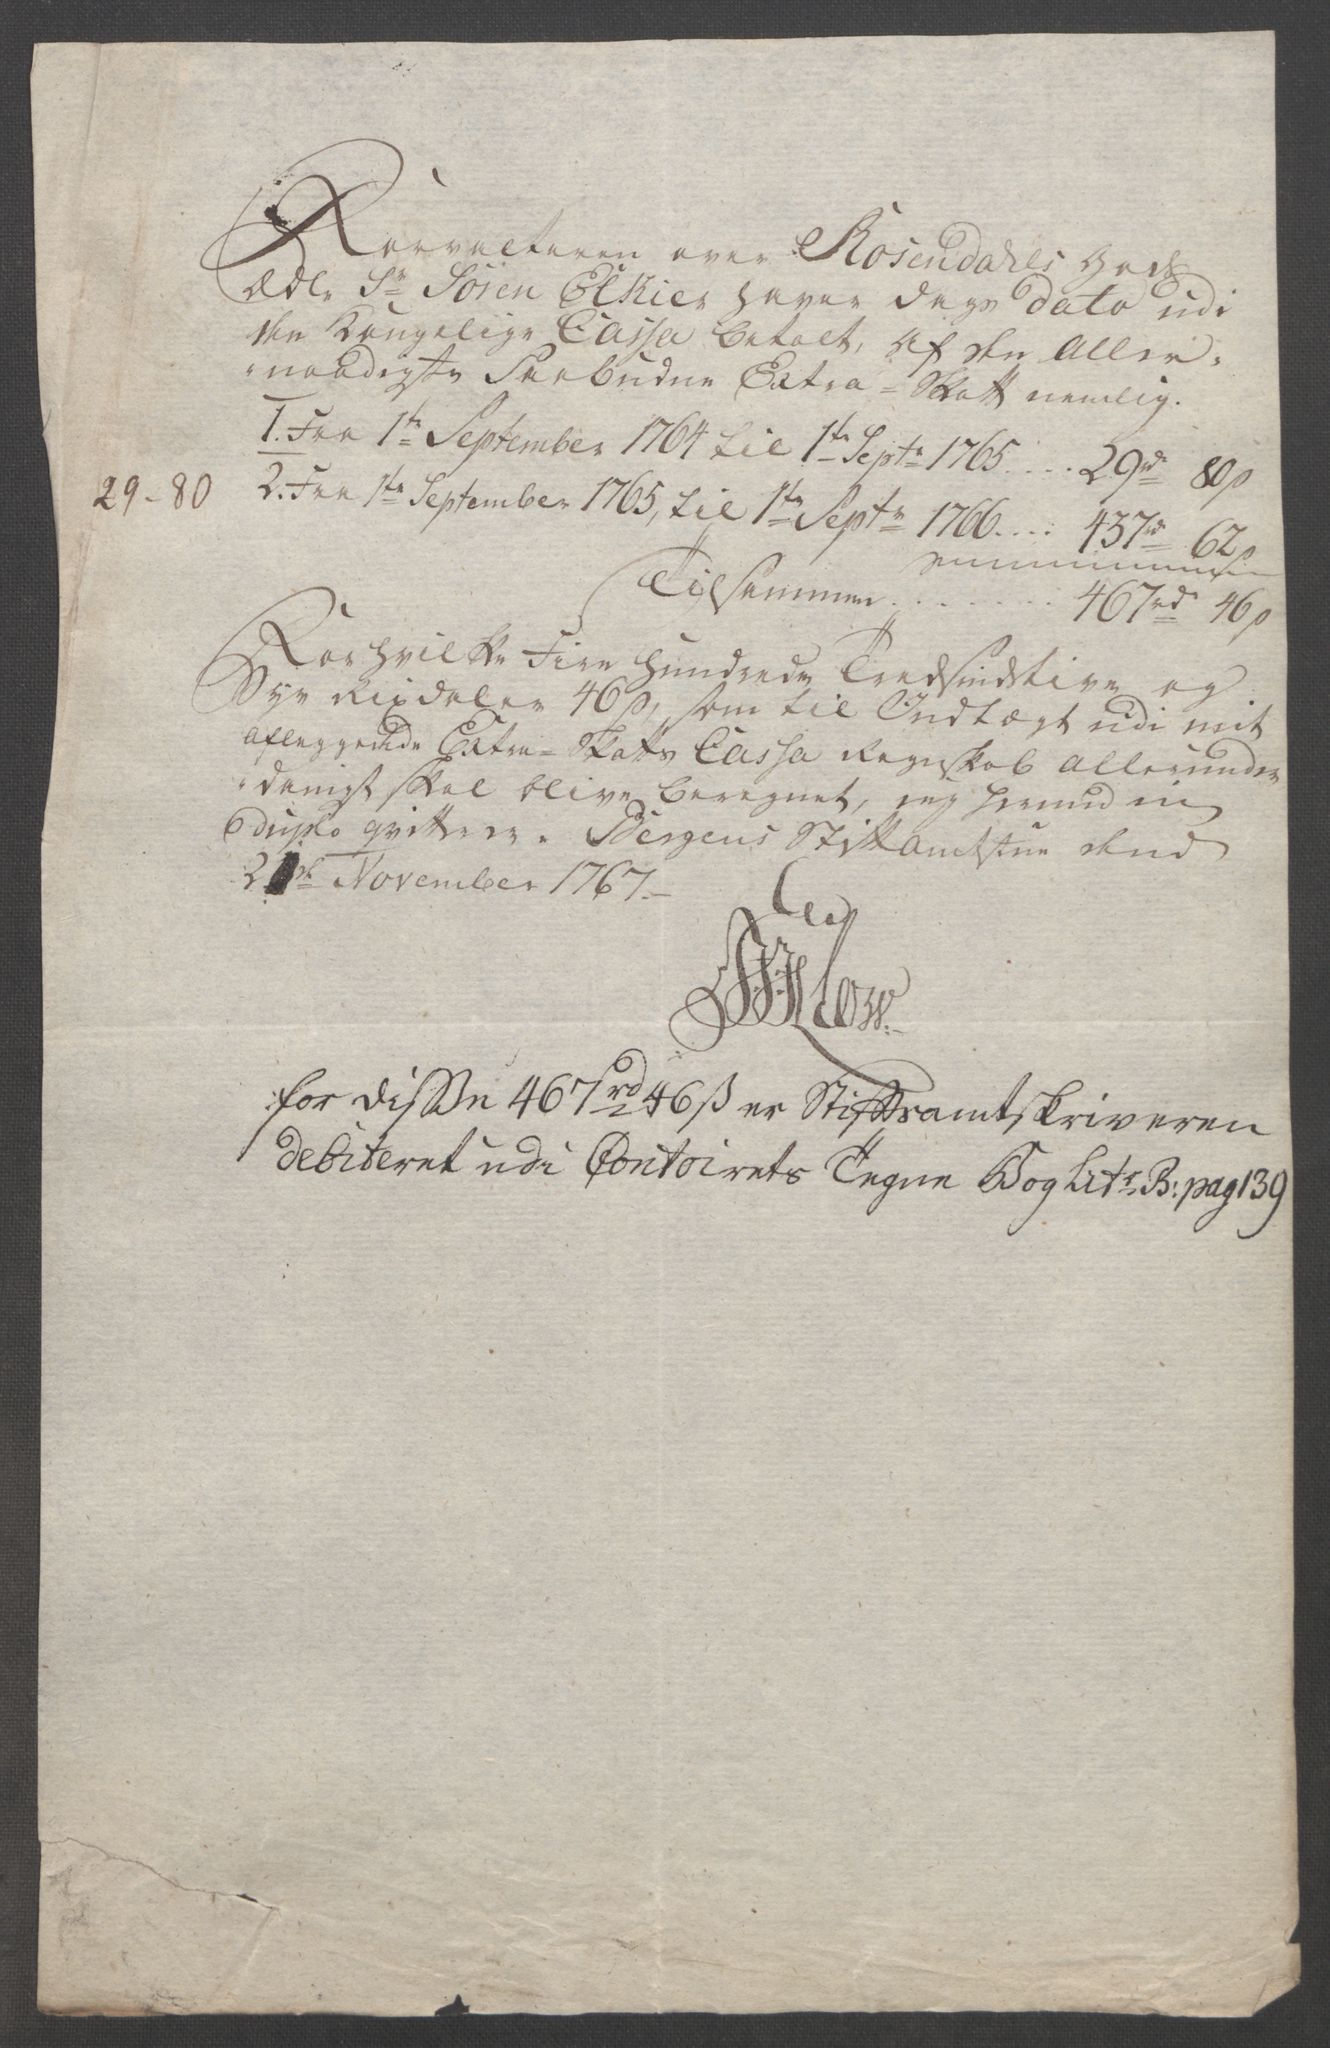 Forvalteren over Rosendahls Gods
Ædle Sr Søren Elkier haver Dags Dato udi
den Kongelige Cassa betalt, af den Aller-
-naadigste Paabudne Extra-Skatt nemlig.
1. Fra 1te September 1764 til 1te Septr 1765 .... 29rd 80ß
29-80
2. Fra 1te September 1765, til 1te Septr 1766 .... 437rd 62ß
Tilsammen ........ 467rd 46ß
For hvilke Fire Hundrede Tredsindstive og
Syv Rixdaler 46ß, som til Indtægt udi mit
aflæggende Extra-Skatts Cassa Regnskab allerunder
-danigst skal blive beregnet, jeg herved in
duplo qvitterer. Bergens Stiftamtstue dend
21de November 1767.
for disse 467rd 46ß er Stiftsamtskriveren
debiteret udi Contoirets Tegne Bog Litr B: pag 139